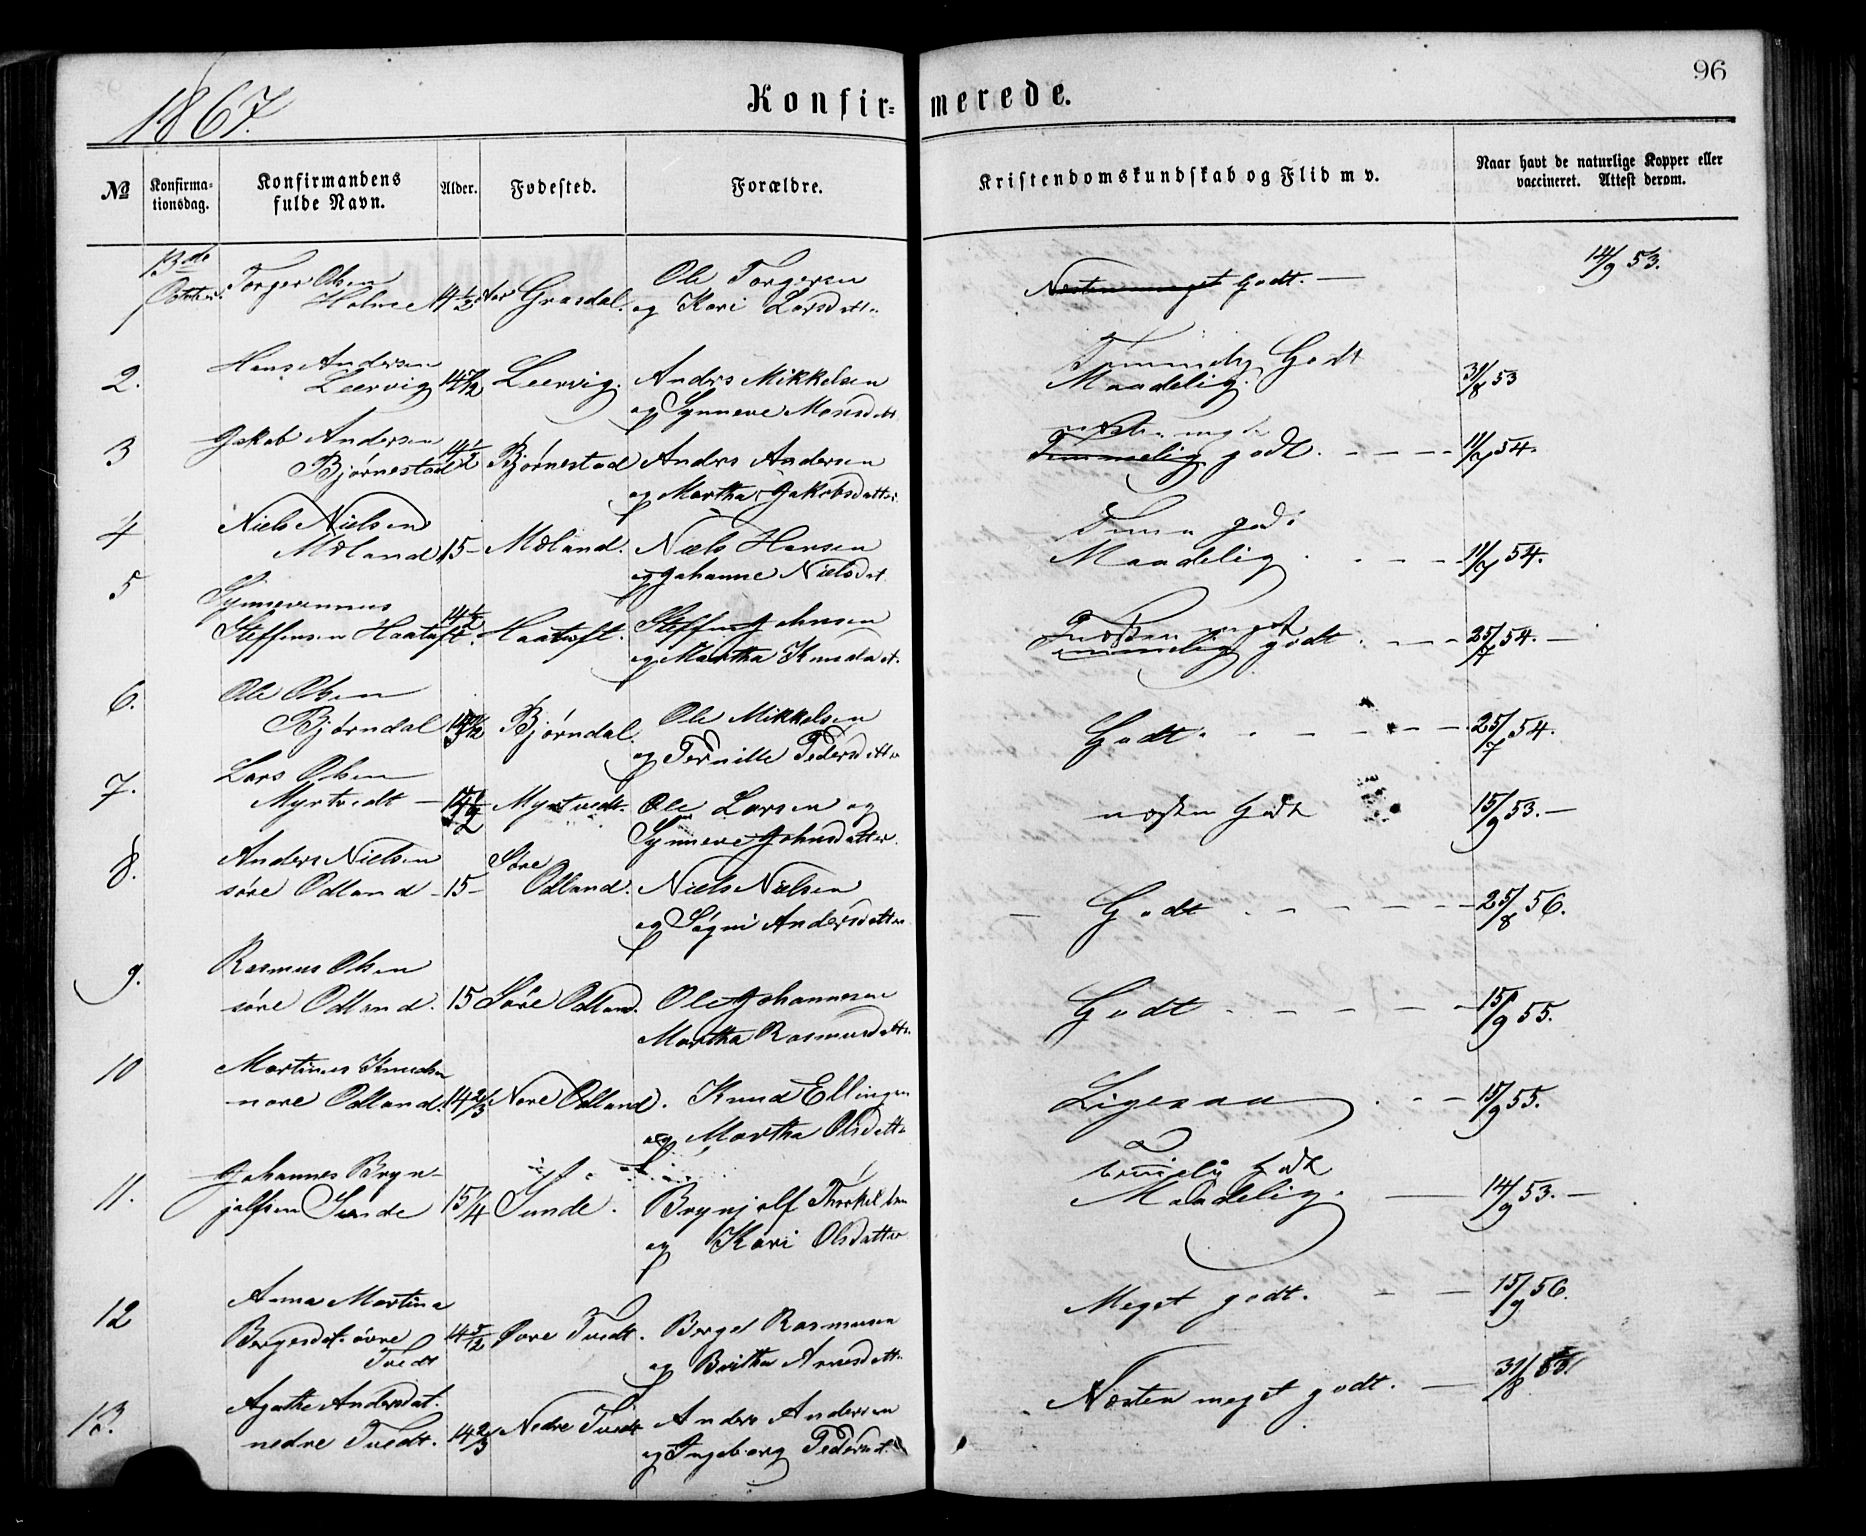 96
1867.
Konfir= merede.
No Konfirma- tionsdag. Konfirmandens fulde Navn. Alder. Fødested. Forældre. Kristendomskundskab og Flid m v. Naar havt de naturlige Kopper eller vaccineret. Attest derom.
13de Torger Olsen Ole Torgersen 14/9 53.
Holme Grasdal. og Kari Larsdatt. Næsten meget Godt.
Hans Andersen Temmelig Godt
2. Leervig 14 7/12 Leervig. Anders Mikkelsen Maadelig. 31/8 53
og Synneve Monsdatt.
Jakob Andersen
3 Bjørnestad 14 1/2 Bjørnestad Anders Andersen Temmelig godt. 11/7 54.
og Martha Jakobsdatter
4 Niels Nielsen
Mæland 15 Mæland. Niels Hansen Maadelig 11/7 54.
og Johanne Nielsdat.
5
Steffensen Haatuft. 14 1/2 Haatuft. Steffen Johnsen Temmelig godt. 25/7 54.
og Martha Knudsdat.
6. Ole Olsen
Bjørndal Bjørndal. Ole Mikkelsen Godt. 25/7 54.
og Pernille Pedersdatter
7. Lars Olsen
Myrtvedt Myrtvedt. Ole Larsen og næsten Godt 15/9 53.
Synneve Johnsdatter.
8. Anders Nielsen Søre
søre Odland 15 Odland. Niels Nielsen Godt 25/8 56.
og Søgni Andersdatter
9. Rasmus Olsen
søre Odland. 15 Søre Odland. Ole Johannesen Godt 15/9 55.
Martha Rasmusdatt.
10 Martinus Knudsen
nore Odland. 14 2/3 Nore Odland. Knud Ellingsen Ligesaa 15/9 55.
og Martha Olsdatt.
Johannes Bryn- Godt
11. jolfsen Sunde 15 1/4 Sunde. Brynjolf Thorkelsen Maadelig. 14/9 53.
og Kari Olsdatter
12 Anna Martina
Bergesdat. øvre 14 5/12 Øvre Tvedt. Berge Rasmusen Meget godt. 15/9 56.
Tvedt og Britha Arnesdatt.
13. Agathe Andersdat. Anders Andersen Næsten meget godt. 31/8 53.
nedre Tvedt. 14 2/3 Nedre Tvedt og Ingeborg Pedersdat.